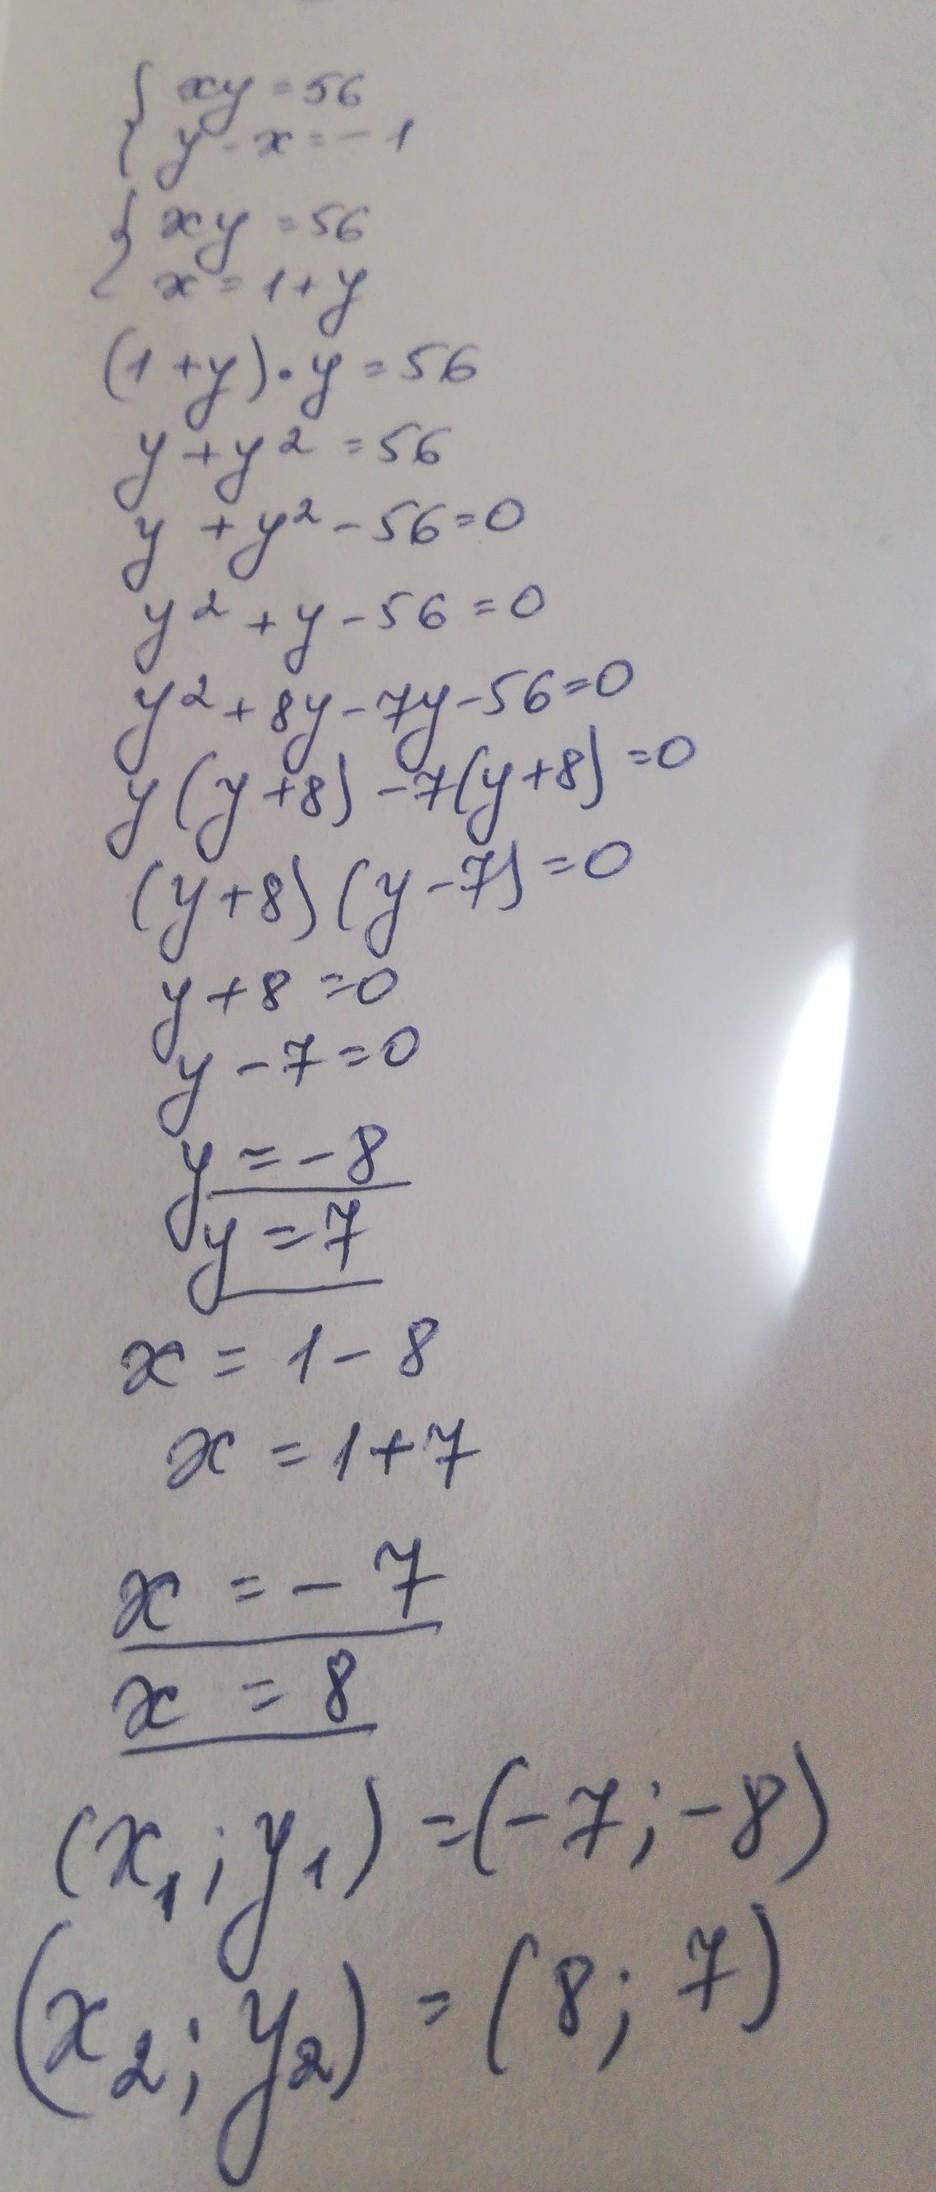 { xy = 56
{ y - x = - 1
{ xy = 56
{ x = 1 + y
(1 + y) · y = 56
y + y² = 56
y + y² - 56 = 0
y² + y - 56 = 0
y² + 8y - 7y - 56 = 0
y (y + 8) - 7(y + 8) = 0
(y + 8) (y - 7) = 0
y + 8 = 0
y - 7 = 0
y = - 8
y = 7
x = 1 - 8
x = 1 + 7
x = - 7
x = 8
(x₁ ; y₁) = (- 7 ; - 8)
(x₂ ; y₂) = (8 ; 7)